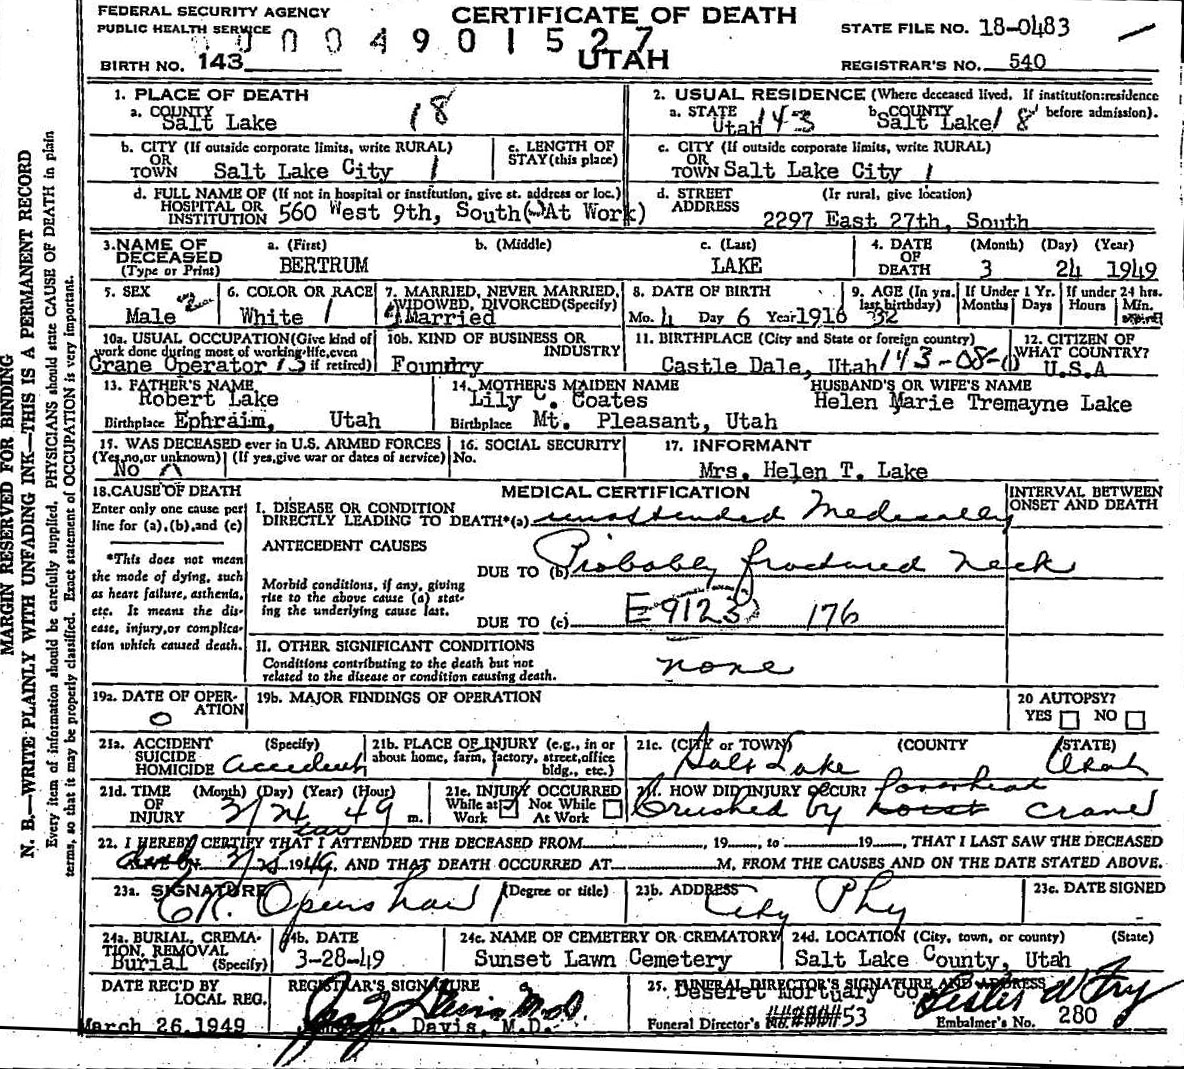 FEDERAL SECURITY AGENCY
PUBLIC HEALTH SERVICE
CERTIFICATE OF DEATH
STATE FILE NO. 18-0483
0004901527
UTAH
BIRTH NO. 143
REGISTRAR'S NO. 540
1. PLACE OF DEATH
a. COUNTY
Salt Lake 18
2. USUAL RESIDENCE (Where deceased lived. If institution: residence before admission).
a. STATE Utah 143 b. COUNTY Salt Lake 18
b. CITY (If outside corporate limits, write RURAL)
OR TOWN Salt Lake City 1
c. LENGTH OF STAY (this place)
c. CITY (If outside corporate limits, write RURAL)
OR TOWN Salt Lake City 1
d. FULL NAME OF (If not in hospital or institution, give st. address or loc.)
HOSPITAL OR INSTITUTION 560 West 9th, South (At Work)
d. STREET ADDRESS (If rural, give location)
2297 East 27th, South
3. NAME OF DECEASED (Type or Print)
a. (First) b. (Middle) c. (Last)
BERTRUM LAKE
4. DATE OF DEATH (Month) (Day) (Year)
3 24 1949
5. SEX
Male
6. COLOR OR RACE
White 1
7. MARRIED, NEVER MARRIED, WIDOWED, DIVORCED (Specify)
Married
8. DATE OF BIRTH
Mo. 4 Day 6 Year 1916
9. AGE (In yrs. last birthday) 32
If Under 1 Yr. Months Days
If under 24 hrs. Hours Min.
10a. USUAL OCCUPATION (Give kind of work done during most of working life, even if retired)
Crane Operator
10b. KIND OF BUSINESS OR INDUSTRY
Foundry
11. BIRTHPLACE (City and State or foreign country)
Castle Dale, Utah 143-08-
12. CITIZEN OF WHAT COUNTRY?
U.S.A
13. FATHER'S NAME
Robert Lake
Birthplace Ephraim, Utah
14. MOTHER'S MAIDEN NAME
Lily C. Coates
Birthplace Mt. Pleasant, Utah
HUSBAND'S OR WIFE'S NAME
Helen Marie Tremayne Lake
15. WAS DECEASED ever in U.S. ARMED FORCES
(Yes, no, or unknown) (If yes, give war or dates of service)
No
16. SOCIAL SECURITY No.
17. INFORMANT
Mrs. Helen T. Lake
18. CAUSE OF DEATH
Enter only one cause per line for (a), (b), and (c)
*This does not mean the mode of dying, such as heart failure, asthenia, etc. It means the disease, injury, or complication which caused death.
MEDICAL CERTIFICATION
INTERVAL BETWEEN ONSET AND DEATH
I. DISEASE OR CONDITION
DIRECTLY LEADING TO DEATH*(a) unattended Medically
ANTECEDENT CAUSES
DUE TO (b) Probably fractured neck
Morbid conditions, if any, giving rise to the above cause (a) stating the underlying cause last.
DUE TO (c) E9123 176
II. OTHER SIGNIFICANT CONDITIONS
Conditions contributing to the death but not related to the disease or condition causing death.
none
19a. DATE OF OPERATION
0
19b. MAJOR FINDINGS OF OPERATION
20 AUTOPSY?
YES NO
21a. ACCIDENT SUICIDE HOMICIDE (Specify)
accident
21b. PLACE OF INJURY (e.g., in or about home, farm, factory, street, office bldg., etc.)
21c. (CITY or TOWN) (COUNTY) (STATE)
Salt Lake Utah
21d. TIME OF INJURY (Month) (Day) (Year) (Hour)
3/24 49 m.
21e. INJURY OCCURRED
While at Work Not While At Work
21f. HOW DID INJURY OCCUR?
Crushed by overhead crane
22. I HEREBY CERTIFY THAT I ATTENDED THE DECEASED FROM 19 , to 19 , THAT I LAST SAW THE DECEASED
1949, AND THAT DEATH OCCURRED AT M, FROM THE CAUSES AND ON THE DATE STATED ABOVE.
23a. SIGNATURE (Degree or title)
C R. Openshaw
23b. ADDRESS
City Phy
23c. DATE SIGNED
24a. BURIAL, CREMATION, REMOVAL (Specify)
Burial
24b. DATE
3-28-49
24c. NAME OF CEMETERY OR CREMATORY
Sunset Lawn Cemetery
24d. LOCATION (City, town, or county) (State)
Salt Lake County, Utah
DATE REC'D BY LOCAL REG.
March 26, 1949
REGISTRAR'S SIGNATURE
Davis, M.D.
25. FUNERAL DIRECTOR'S SIGNATURE AND ADDRESS
Deseret Mortuary Co
Funeral Director's No. 53
Embalmer's No. 280
MARGIN RESERVED FOR BINDING
N. B.—WRITE PLAINLY WITH UNFADING INK—THIS IS A PERMANENT RECORD
Every item of information should be carefully supplied. PHYSICIANS should state CAUSE OF DEATH in plain
terms, so that it may be properly classified. Exact statement of OCCUPATION is very important.